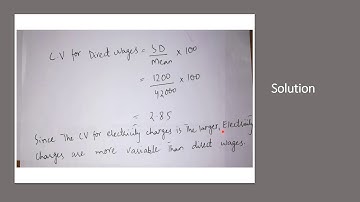 C.V for Direct wages = SD/Mean × 100
= 1200/42000 × 100
= 2.85
Since The CV for electricity charges is The larger, Electricity
charges are more variable Than direct wages.
Solution